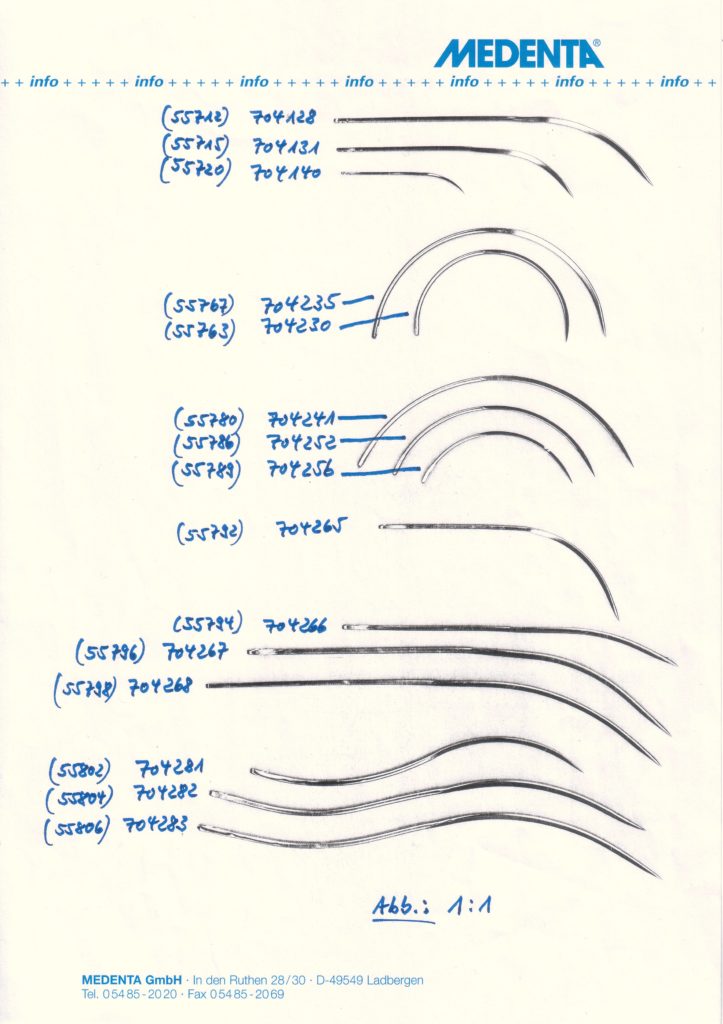 MEDENTA®
+ + info + + + + + info + + + + + info + + + + + info + + + + + info + + + + + info + + + + + info + +
(55712) 704128
(55715) 704131
(55720) 704140
(55767) 704235
(55763) 704230
(55780) 704241
(55786) 704252
(55789) 704256
(55792) 704265
(55794) 704266
(55796) 704267
(55798) 704268
(55802) 704281
(55804) 704282
(55806) 704283
Abb.: 1:1
MEDENTA GmbH · In den Ruthen 28/30 · D-49549 Ladbergen
Tel. 05485-2020 · Fax 05485-2069